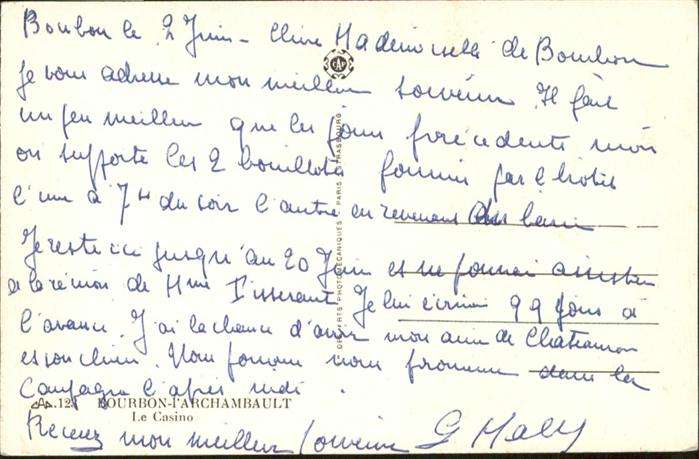 Bourbon le 2 Juin - Chère Mademoiselle de Bourbon
je vous adresse mon meilleur souvenir Il fait
un peu meilleur que les jours précédents mais
on supporte les 2 bouillottes fournies par l'hotel
l'une à 7 H du soir l'autre en revenant du bain
Je reste ici jusqu'au 20 Juin et ne pourrai assister
à la réunion de Mme Je lui écrirai qq jours à
l'avance. J'ai la chance d'avoir mon amie de
et son chien. Nous pouvons nous promener dans la
campagne l'après midi.
12 BOURBON-l'ARCHAMBAULT
Le Casino
Recevez mon meilleur souvenir G
CAP
PHOTOMÉCANIQUES - PARIS - STRASBOURG